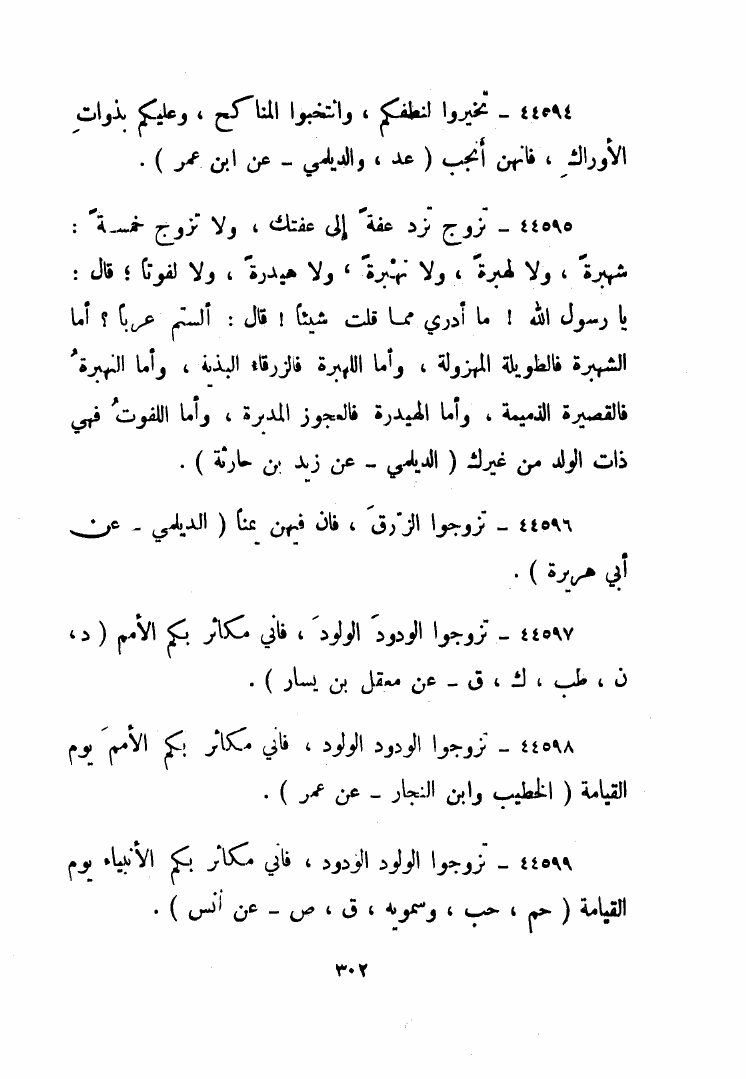 ٤٤٥٩٤ ــ تخيروا لنطفكم ، وانتخبوا المناكح ، وعليكم بذواتِ
الأوراكِ ، فانهن أنجب ( عد ، والديلمي ــ عن ابن عمر ) .
٤٤٥٩٥ ــ تزوج تزد عفةً إلى عفتك ، ولا تزوج خمسةً :
شهبرةً ، ولا لهبرةً ، ولا نهْبرةً ، ولا هيدرةً ، ولا لفوتاً ؛ قال :
يا رسول الله ! ما أدري مما قلت شيئاً ! قال : ألستم عرباً ؟ أما
الشهبرة فالطويلة المهزولة ، وأما اللهبرة فالزرقاء البذية ، وأما النهبرةُ
فالقصيرة الذميمة ، وأما الهيدرة فالعجوز المدبرة ، وأما اللفوتُ فهي
ذات الولد من غيرك ( الديلمي ــ عن زيد بن حارثة ) .
٤٤٥٩٦ ــ تزوجوا الزّرقَ ، فان فيهن يمناً ( الديلمي ــ عن
أبي هريرة ) .
٤٤٥٩٧ ــ تزوجوا الودودَ الولودَ ، فاني مكاثر بكم الأمم ( د ،
ن ، طب ، ك ، ق ــ عن معقل بن يسار ) .
٤٤٥٩٨ ــ تزوجوا الودود الولود ، فاني مكاثر بكم الأممَ يوم
القيامة ( الخطيب وابن النجار ــ عن عمر ) .
٤٤٥٩٩ ــ تزوجوا الولود الودود ، فاني مكاثر بكم الأنبياء يوم
القيامة ( حم ، حب ، وسمويه ، ق ، ص ــ عن أنس ) .
٣٠٢